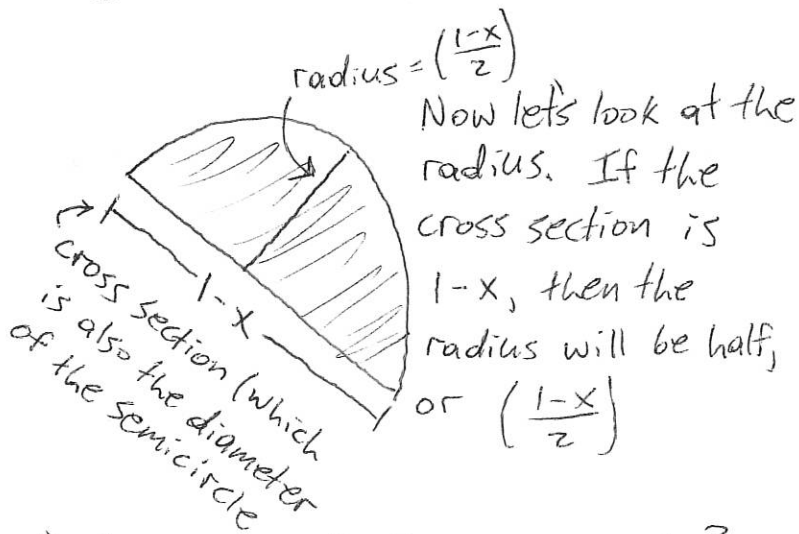 radius = (1-x/2)
Now let's look at the
radius. If the
cross section is
1-x, then the
radius will be half,
or (1-x/2)
1-x
cross section (which
is also the diameter
of the semicircle